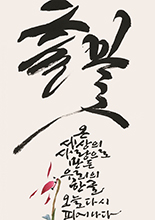 온
세상의
사랑으로
만든
우리의
한글
오늘 다시
피어나다